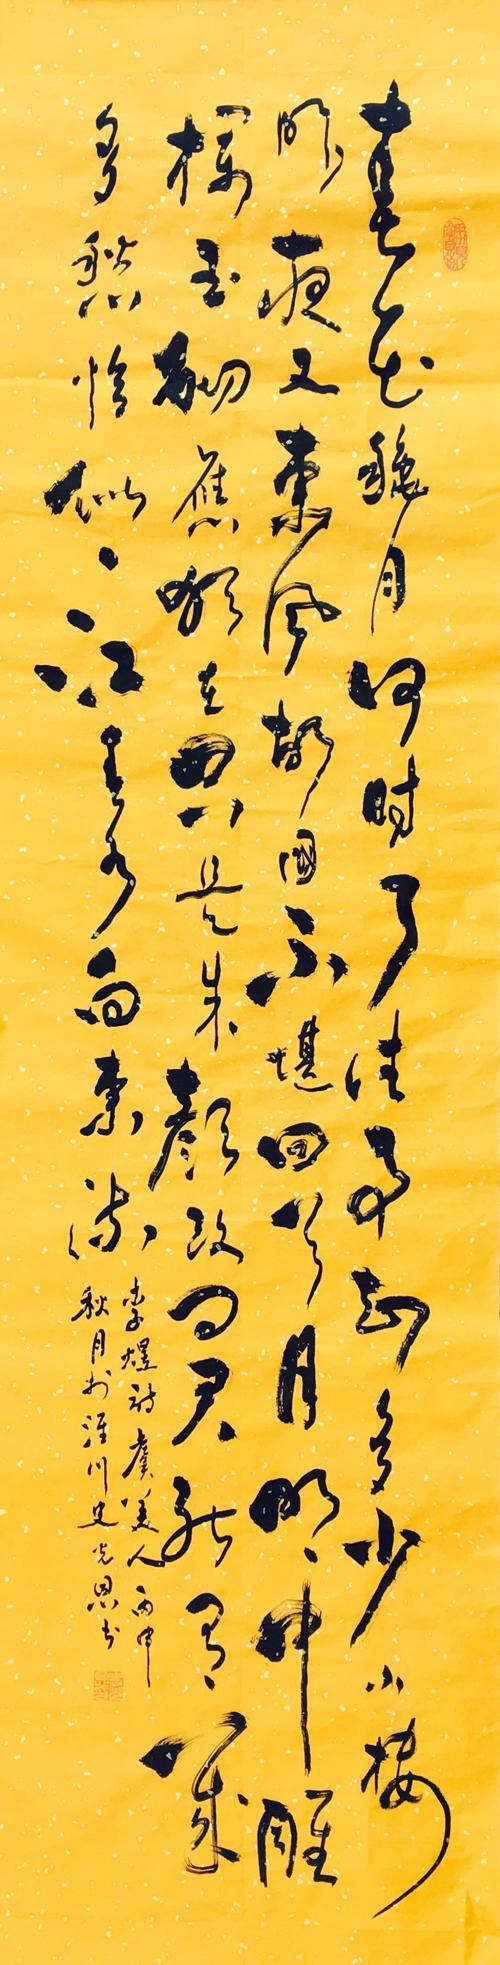 春花秋月何時了往事知多少小樓
昨夜又東風故國不堪回首月明中雕
欄玉砌應猶在只是朱顏改問君能有幾
多愁恰似一江春水向東流
李煜詩虞美人丙申
秋月於淮川史光恩书